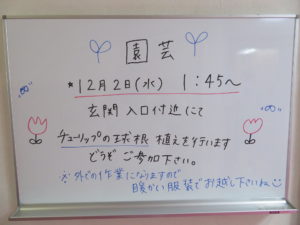 園芸
*12月2日(水) 1:45〜
玄関入口付近にて
チューリップの球根 植えを行います
どうぞご参加下さい。
※外での作業になりますので
暖かい服装でお越し下さいね